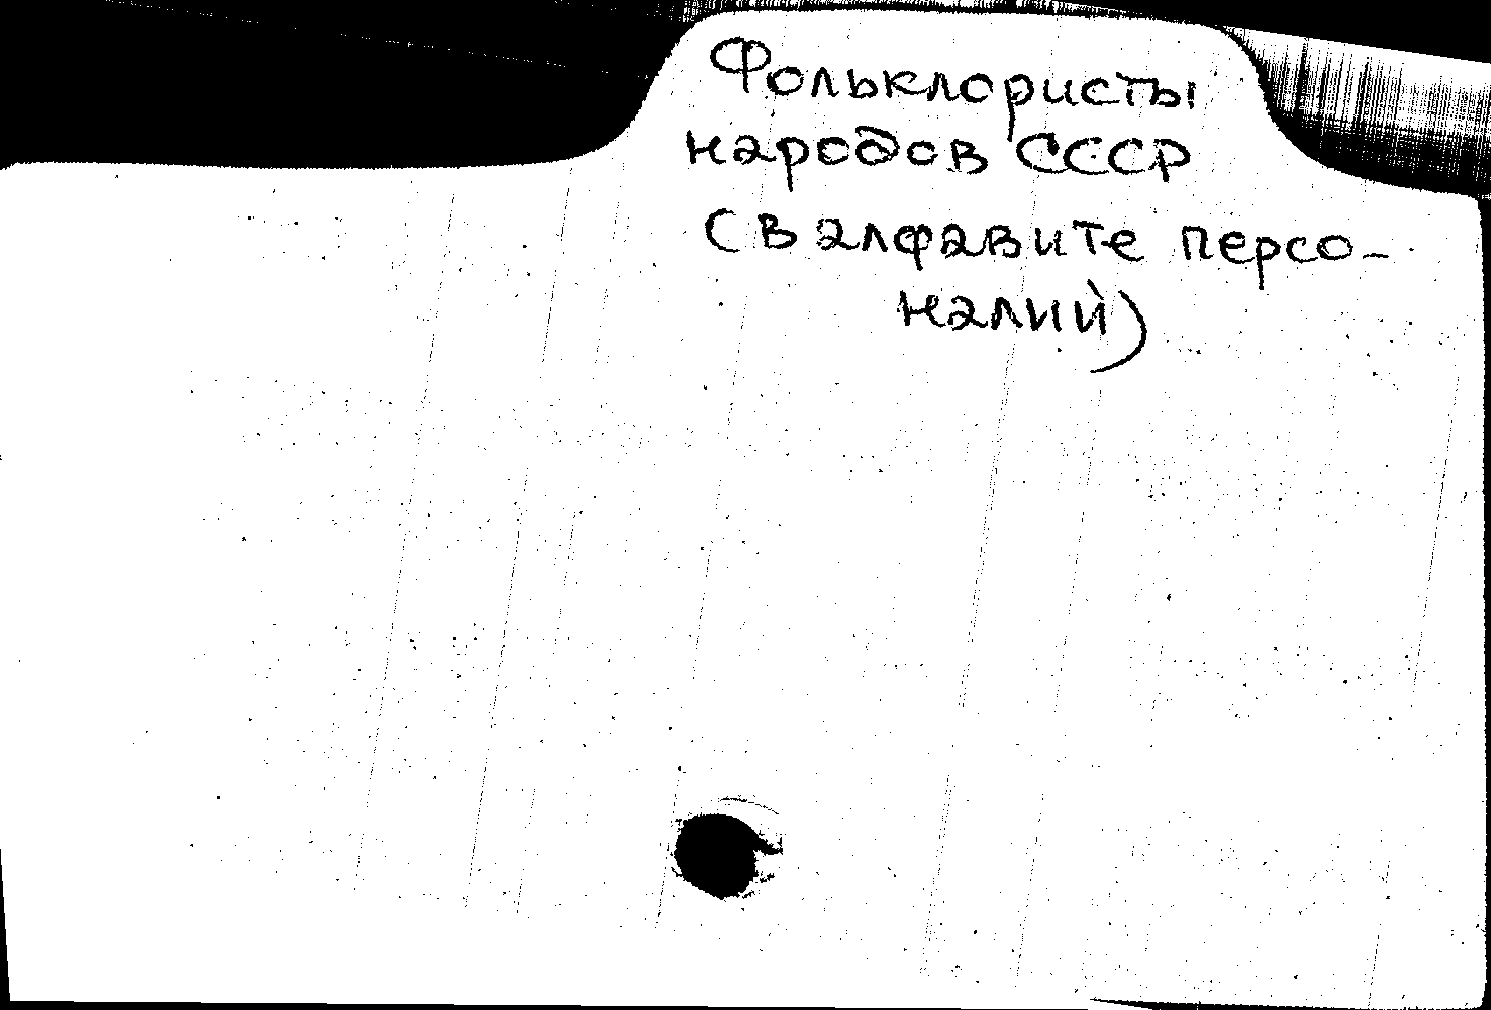 Фольклористы
народов СССР
(в алфавите персо-
налий)